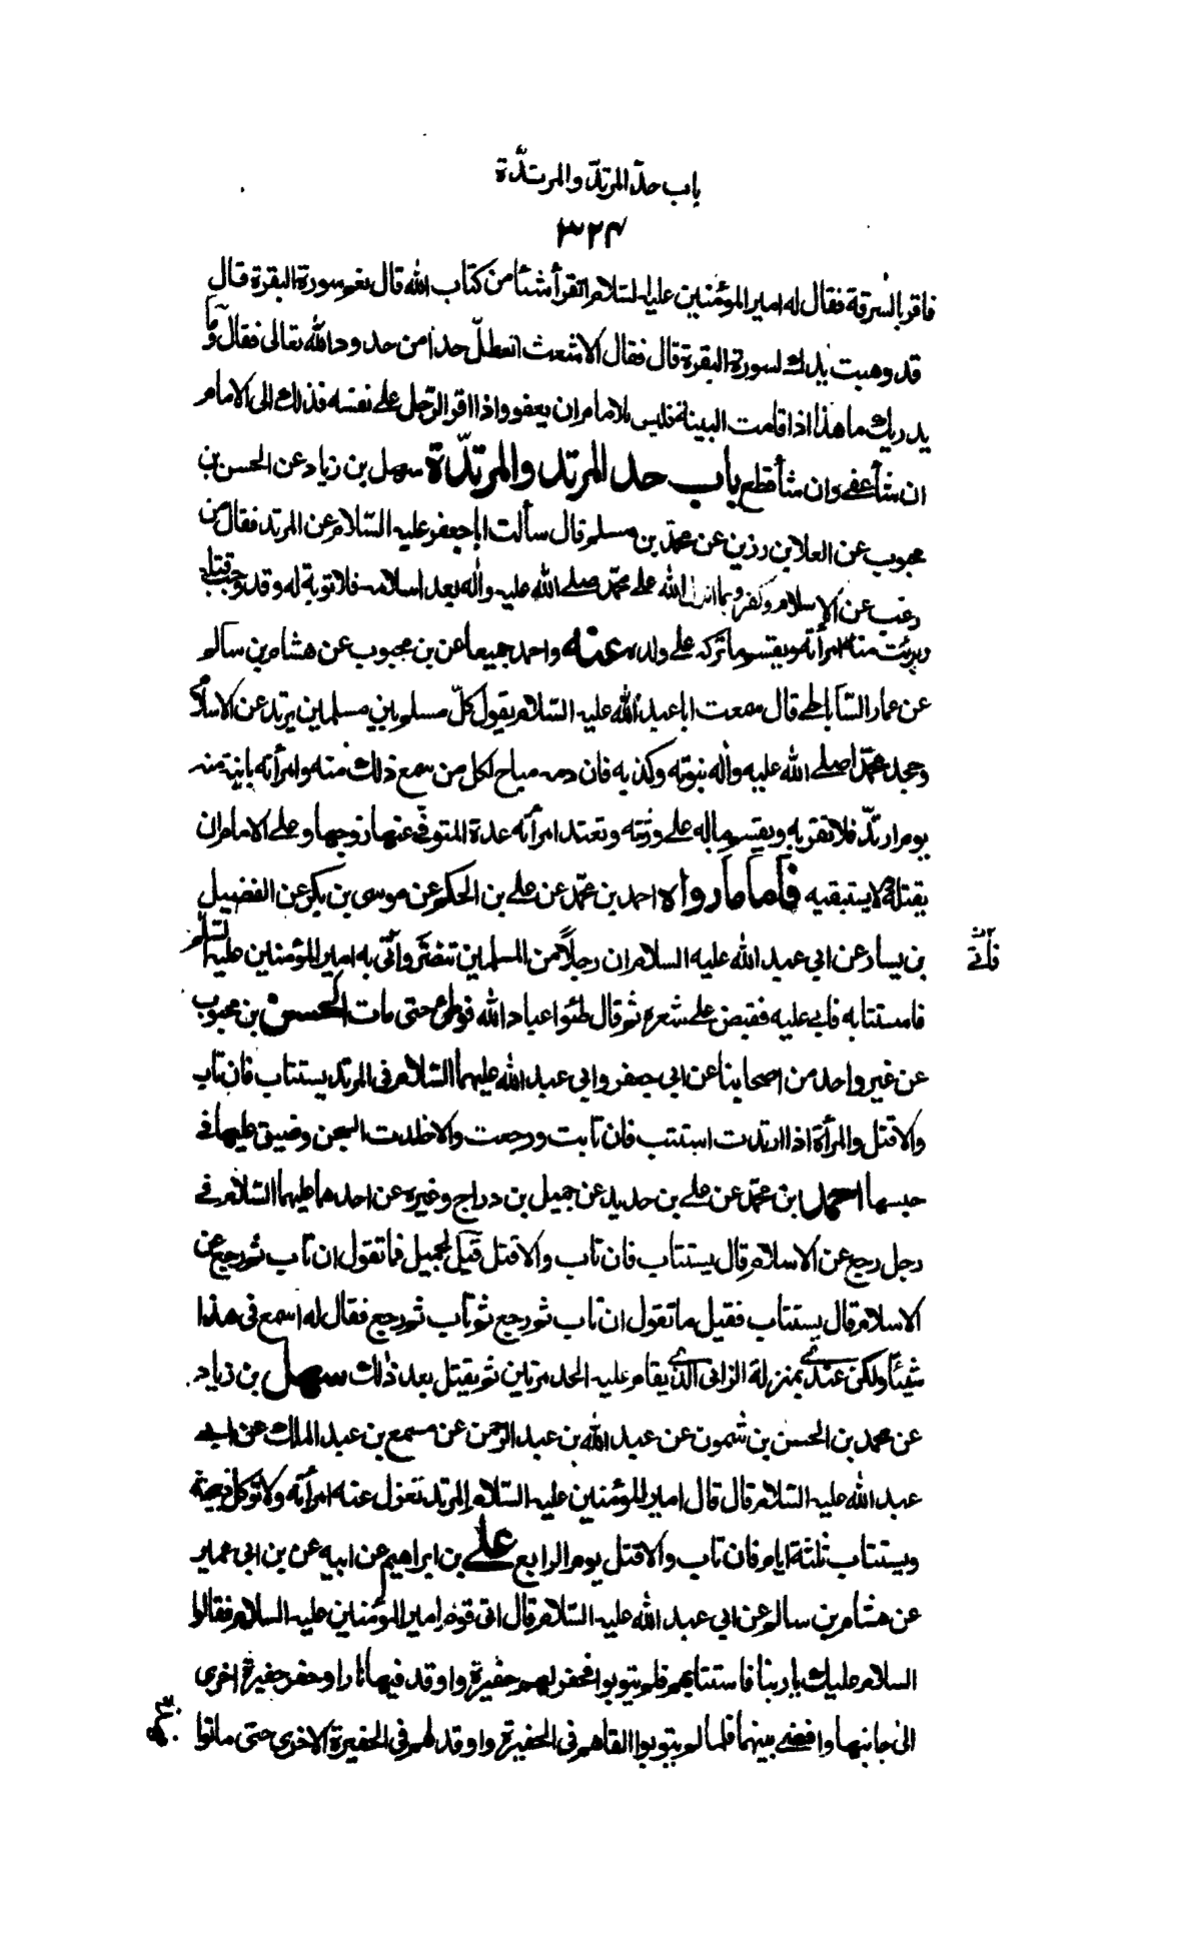 باب حدّ المرتدّ والمرتدّة
٣٢۴
فاقر بالسرقة فقال له امير المؤمنين عليه السلام اتقرأ شيئا من كتاب الله قال نعم سورة البقرة قال
قد وهبت يدك لسورة البقرة قال فقال الاشعث اتعطل حدا من حدود الله تعالى فقال وما
يدريك ما هذا اذا قامت البينة فليس للامام ان يعفو واذا اقر الرّجل على نفسه فذلك الى الامام
ان شاء عفى وان شاء قطع باب حد المرتد والمرتدّة سهل بن زياد عن الحسن بن
محبوب عن العلا بن رزين عن محمّد بن مسلم قال سألت ابا جعفر عليه السّلام عن المرتد فقال من
رغب عن الاسلام وكفر بما انزل الله على محمّد صلى الله عليه واله بعد اسلامه فلا توبة له وقد وجب قتله
وبرئت منه امرأته ويقسم ما تركه على ولده عنه واحمد جميعا عن بن محبوب عن هشام بن سالم
عن عمار السّاباطى قال سمعت ابا عبد الله عليه السّلام يقول كلّ مسلم بين مسلمين يرتد عن الاسلام
وجحد محمّدا صلى الله عليه واله نبوته وكذبه فان دمه مباح لكل من سمع ذلك منه وامرأته باينة منه
يوم ارتدّ فلا تقربه ويقسم ماله على ورثته وتعتد امرأته عدة المتوفى عنها زوجها وعلى الامام ان
يقتله ولا يستبقيه فأما ما رواه احمد بن محمّد عن على بن الحكم عن موسى بن بكر عن الفضيل
بن يسار عن ابي عبد الله عليه السلام ان رجلاً من المسلمين تنصّر وأتى به امير المؤمنين عليه السّلم
فاتى
فاستتابه فابى عليه فقبض على شعره ثم قال طئوا عباد الله فوطئ حتى مات الحسن بن محبوب
عن غير واحد من اصحابنا عن ابي جعفر وابي عبد الله عليهما السّلام فى المرتد يستتاب فان تاب
والا قتل والمرأة اذا ارتدت استتيب فان تابت ورجعت والا خلدت السجن وضيق عليها فى
حبسها احمد ابن محمّد عن على بن حديد عن جميل بن دراج وغيره عن احدهما عليهما السّلام فى
رجل رجع عن الاسلام قال يستتاب فان تاب والا قتل قيل لجميل فما تقول ان تاب ثم رجع عن
الاسلام قال يستتاب فقيل ما تقول ان تاب ثم رجع ثم تاب ثم رجع فقال له اسمع فى هذا
شيئًا ولكن عندى بمنزلة الزانى الذى يقام عليه الحد مرتين ثم يقتل بعد ذلك سهل بن زياد
عن محمد بن الحسن بن شمون عن عبد الله بن عبد الرّحمن عن مسمع بن عبد الملك عن ابى
عبد الله عليه السّلام قال قال امير المؤمنين عليه السّلام المرتد تعزل عنه امرأته ولا توكل ذبيحته
ويستتاب ثلثة ايام فان تاب والا قتل يوم الرابع على بن ابراهيم عن ابيه عن بن ابى عمير
عن هشام بن سالم عن ابي عبد الله عليه السّلام قال اتى قوم امير المؤمنين عليه السلام فقالوا
السلام عليك يا ربنا فاستتابهم فلم يتوبوا فحفر لهم حفيرة واوقد فيها نارا وحفر حفيرة اخرى
الى جانبها وافضى بينهما فلما لم يتوبوا القاهم فى الحفيرة واوقد لهم فى الحفيرة الاخرى حتى ماتوا